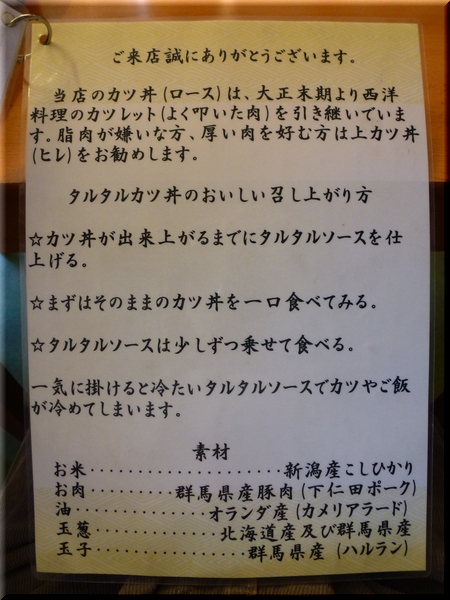 ご来店誠にありがとうございます。
当店のカツ丼(ロース)は、大正末期より西洋
料理のカツレット(よく叩いた肉)を引き継いでいま
す。脂肉が嫌いな方、厚い肉を好む方は上カツ丼
(ヒレ)をお勧めします。
タルタルカツ丼のおいしい召し上がり方
☆カツ丼が出来上がるまでにタルタルソースを仕
上げる。
☆まずはそのままのカツ丼を一口食べてみる。
☆タルタルソースは少しずつ乗せて食べる。
一気に掛けると冷たいタルタルソースでカツやご飯
が冷めてしまいます。
素材
お米・・・・・・・・・・・・・・・・・・・・・新潟産こしひかり
お肉・・・・・・・・・群馬県産豚肉(下仁田ポーク)
油・・・・・・・・・・・・・オランダ産(カメリアラード)
玉葱・・・・・・・・・・・・・・北海道産及び群馬県産
玉子・・・・・・・・・・・・・・・・・群馬県産(ハルラン)